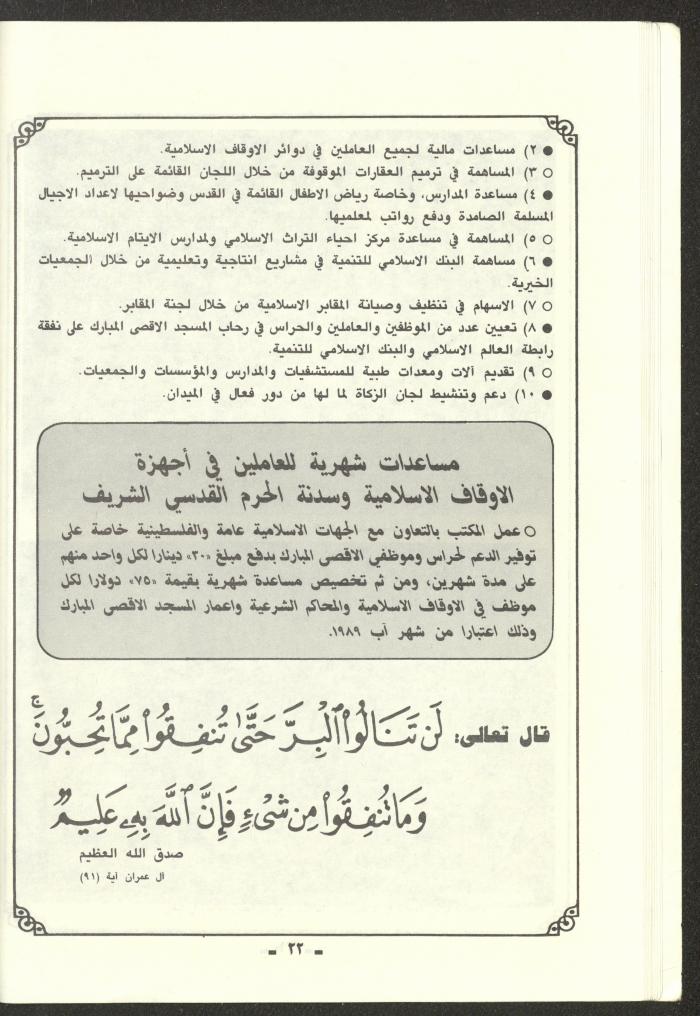 ● ٢) مساعدات مالية لجميع العاملين في دوائر الاوقاف الاسلامية.
○ ٣) المساهمة في ترميم العقارات الموقوفة من خلال اللجان القائمة على الترميم.
● ٤) مساعدة المدارس، وخاصة رياض الاطفال القائمة في القدس وضواحيها لاعداد الاجيال
المسلمة الصامدة ودفع رواتب لمعلميها.
○ ٥) المساهمة في مساعدة مركز احياء التراث الاسلامي ولمدارس الايتام الاسلامية.
● ٦) مساهمة البنك الاسلامي للتنمية في مشاريع انتاجية وتعليمية من خلال الجمعيات
الخيرية.
○ ٧) الاسهام في تنظيف وصيانة المقابر الاسلامية من خلال لجنة المقابر.
● ٨) تعيين عدد من الموظفين والعاملين والحراس في رحاب المسجد الاقصى المبارك على نفقة
رابطة العالم الاسلامي والبنك الاسلامي للتنمية.
○ ٩) تقديم آلات ومعدات طبية للمستشفيات والمدارس والمؤسسات والجمعيات.
● ١٠) دعم وتنشيط لجان الزكاة لما لها من دور فعال في الميدان.
مساعدات شهرية للعاملين في أجهزة
الاوقاف الاسلامية وسدنة الحرم القدسي الشريف
○ عمل المكتب بالتعاون مع الجهات الاسلامية عامة والفلسطينية خاصة على
توفير الدعم لحراس وموظفي الاقصى المبارك بدفع مبلغ «٣٠» دينارا لكل واحد منهم
على مدة شهرين، ومن ثم تخصيص مساعدة شهرية بقيمة «٧٥» دولارا لكل
موظف في الاوقاف الاسلامية والمحاكم الشرعية واعمار المسجد الاقصى المبارك
وذلك اعتبارا من شهر آب ١٩٨٩.
قال تعالى: لَن تَنَالُوا۟ ٱلْبِرَّ حَتَّىٰ تُنفِقُوا۟ مِمَّا تُحِبُّونَ ۚ
وَمَا تُنفِقُوا۟ مِن شَىْءٍ فَإِنَّ ٱللَّهَ بِهِۦ عَلِيمٌ
صدق الله العظيم
آل عمران آية (٩١)
- ٢٢ -